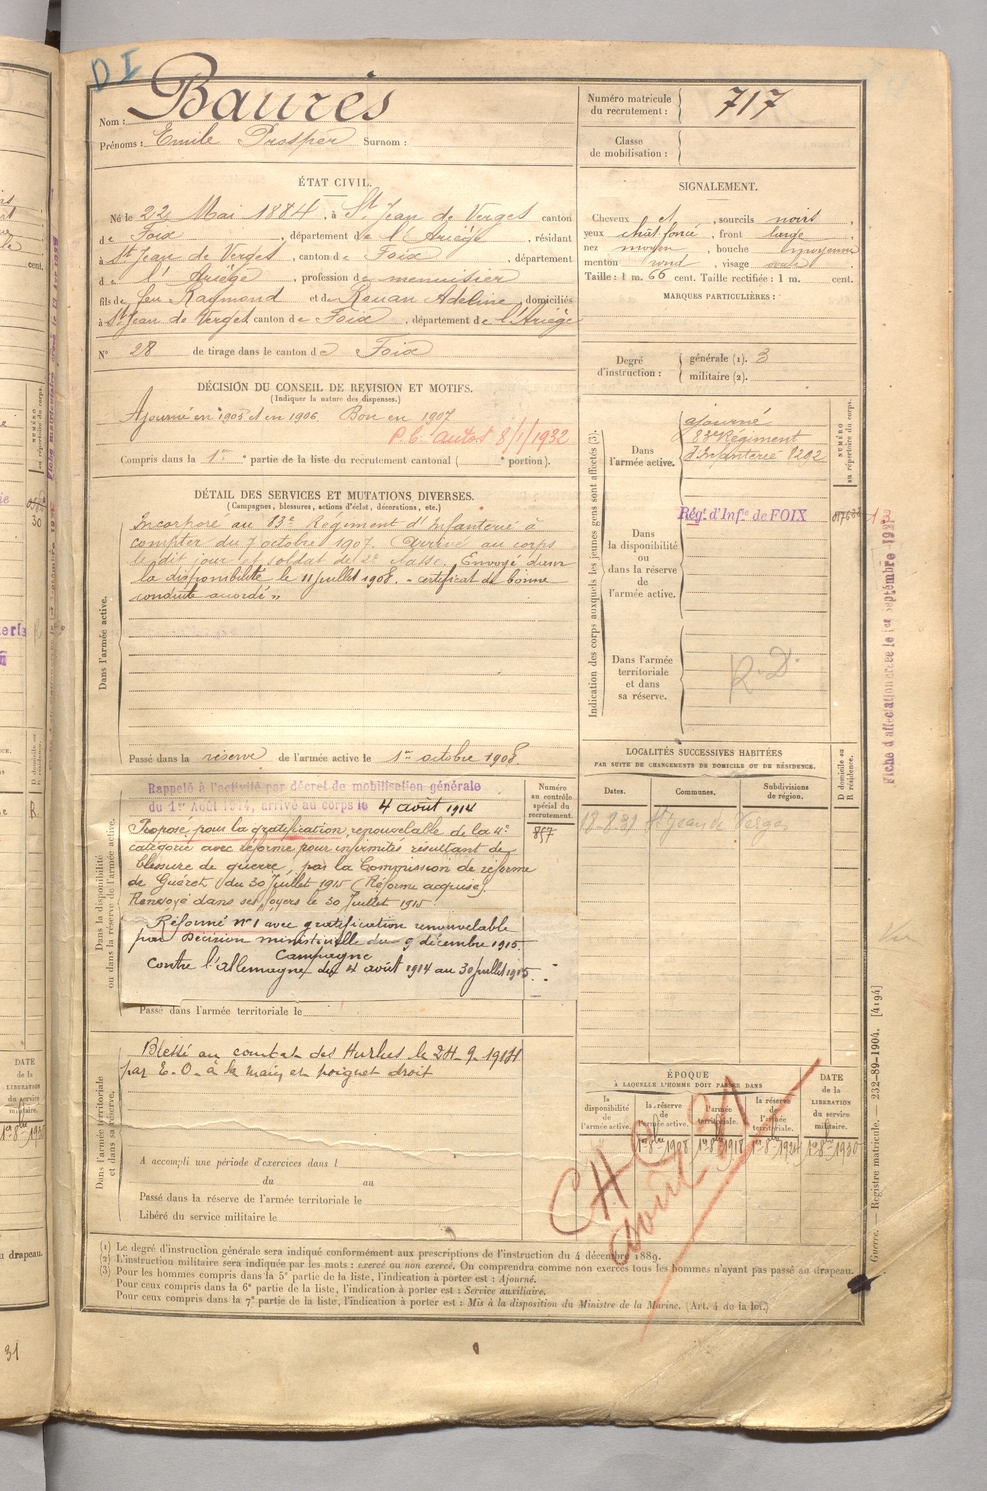 D I
Nom : Baurès
Prénoms : Emile Prosper Surnom :
Numéro matricule
du recrutement : 717
Classe
de mobilisation :
ÉTAT CIVIL.
Né le 22 Mai 1884, à St Jean de Verges canton
de Foix, département de l'Ariège, résidant
à St Jean de Verges, canton de Foix, département
de l'Ariège, profession de menuisier
fils de feu Raymond et de Rouan Adeline, domiciliés
à St Jean de Verges canton de Foix, département de l'Ariège
N° 28 de tirage dans le canton de Foix
SIGNALEMENT.
Cheveux et, sourcils noirs,
yeux chât foncé, front large,
nez moyen, bouche moyenne
menton rond, visage ovale,
Taille : 1 m. 66 cent. Taille rectifiée : 1 m. cent.
MARQUES PARTICULIÈRES :
Degré
d'instruction :
générale (1). 3
militaire (2).
DÉCISION DU CONSEIL DE REVISION ET MOTIFS.
(Indiquer la nature des dispenses.)
Ajourné en 1905 et en 1906. Bon en 1907
P.C. autos 8/1/1932
Compris dans la 1re partie de la liste du recrutement cantonal ( portion).
DÉTAIL DES SERVICES ET MUTATIONS DIVERSES.
(Campagnes, blessures, actions d'éclat, décorations, etc.)
Dans l'armée active.
Incorporé au 83e Régiment d'Infanterie à
compter du 7 octobre 1907. Arrivé au corps
le dit jour, soldat de 2e classe. Envoyé dans
la disponibilité le 11 juillet 1908. - certificat de bonne
conduite accordé "
Passé dans la réserve de l'armée active le 1er octobre 1908.
Indication des corps auxquels les jeunes gens sont affectés (3).
Dans
l'armée active.
ajourné
83e Régiment
d'Infanterie 8292
NUMÉRO
au répertoire du corps.
Dans
la disponibilité
ou
dans la réserve
de
l'armée active.
Rég. d'Infie de FOIX
13
Dans l'armée
territoriale
et dans
sa réserve.
R.D.
Fiche d'affectation créée le 1er septembre 19
Dans la disponibilité
ou dans la réserve de l'armée active.
Rappelé à l'activité par décret de mobilisation générale
du 1er Août 1914, arrivé au corps le 4 août 1914
Proposé pour la gratification renouvelable de la 4e
catégorie avec réforme pour infirmités résultant de
blessure de guerre, par la Commission de réforme
de Guéret du 30 Juillet 1915 (Réforme acquise).
Renvoyé dans ses foyers le 30 Juillet 1915
Réformé n°1 avec gratification renouvelable
par Décision ministérielle du 9 décembre 1915.
Campagne
contre l'allemagne du 4 août 1914 au 30 juillet 1915.
Numéro
au contrôle
spécial du
recrutement.
857
Passé dans l'armée territoriale le
LOCALITÉS SUCCESSIVES HABITÉES
PAR SUITE DE CHANGEMENTS DE DOMICILE OU DE RÉSIDENCE.
Dates.
Communes.
Subdivisions
de région.
D domicile ou
R résidence.
18-8-31 St Jean de Verges
Dans l'armée territoriale
et dans sa réserve.
Blessé au combat des Hurlus le 24-9-1914
par E.O. à la main et poignet droit
A accompli une période d'exercices dans l
du au
Passé dans la réserve de l'armée territoriale le
Libéré du service militaire le
ÉPOQUE
À LAQUELLE L'HOMME DOIT PASSER DANS
la
disponibilité
de
l'armée active.
la réserve
de
l'armée active.
l'armée
territoriale.
la réserve
de
l'armée
territoriale.
DATE
de la
LIBÉRATION
du service
militaire.
1er 8bre 1908
1er 8bre 1918
1er 8bre 1924
1er 8bre 1930
août 31
Guerre. — Registre matricule. — 232-89-1904. [4194]
(1) Le degré d'instruction générale sera indiqué conformément aux prescriptions de l'instruction du 4 décembre 1889.
(2) L'instruction militaire sera indiquée par les mots : exercé ou non exercé. On comprendra comme non exercés tous les hommes n'ayant pas passé au drapeau.
(3) Pour les hommes compris dans la 5e partie de la liste, l'indication à porter est : Ajourné.
Pour ceux compris dans la 6e partie de la liste, l'indication à porter est : Service auxiliaire.
Pour ceux compris dans la 7e partie de la liste, l'indication à porter est : Mis à la disposition du Ministre de la Marine. (Art. 4 de la loi.)